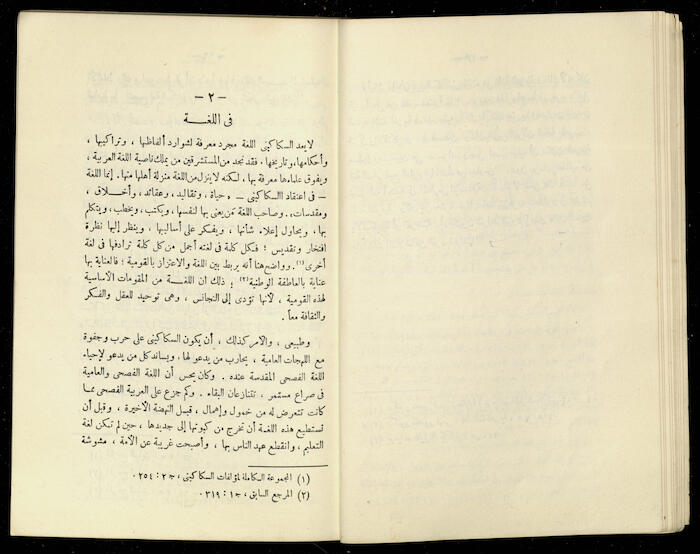 — ٢ —
فى اللغـــة
لا يعد السكاكينى اللغة مجرد معرفة لشوارد ألفاظها ، وتراكيبها ،
وأحكامها، وتاريخها . فقد نجد من المستشرقين من يملك ناصية اللغة العربية ،
ويفوق علماءها معرفة بها . لكنه لا ينزل من اللغة منزلة أهلها منها . إنما اللغة
— فى اعتقاد االسكاكينى — « حياة ، وتقاليد ، وعقائد ، وأخلاق ،
ومقدسات». وصاحب اللغة من يعنى بها لنفسها ، ويكتب، ويخطب، ويتكلم
بها . ويحاول إعلاء شأنها ، ويفكر على أساليبها ، وينظر إليها نظرة
افتخار وتقديس ؛ فكل كلمة فى لغته أجمل من كل كلمة ترادفها فى لغة
أخرى(١). وواضح هنا أنه يربط بين اللغة والاعتزاز بالقومية ؛ فالعناية بها
عناية بالعاطفة الوطنية(٢) ؛ ذلك أن اللغـــة من المقومات الأساسية
لهذه القومية ، لأنها تؤدى إلى التجانس ، وهى توحيد للعقل والفكر
والثقافة معاً .
وطبيعى ، والأمر كذلك ، أن يكون السكاكينى على حرب وجفوة
مع اللهجات العامية ، يحارب من يدعو لها ، ويساند كل من يدعو لإحياء
اللغة الفصحى المقدسة عنده . وكان يحس أن اللغة الفصحى والعامية
فى صراع مستمر ، تتنازعان البقاء . وكم جزع على العربية الفصحى مما
كانت تتعرض له من خمول وإهمال ، قبل النهضة الأخيرة ، وقبل أن
تستطيع هذه اللغة أن تخرج من كبوتها إلى جديدها ، حين لم تكن لغة
التعليم ، وانقطع عهد الناس بها ، وأصبحت غريبة عن الأمة ، مشوشة
(١) المجموعة الكاملة لمؤلفات السكاكينى ، ج٢ : ٢٥٤ .
(٢) المرجع السابق ، ج١ : ٣١٩ .